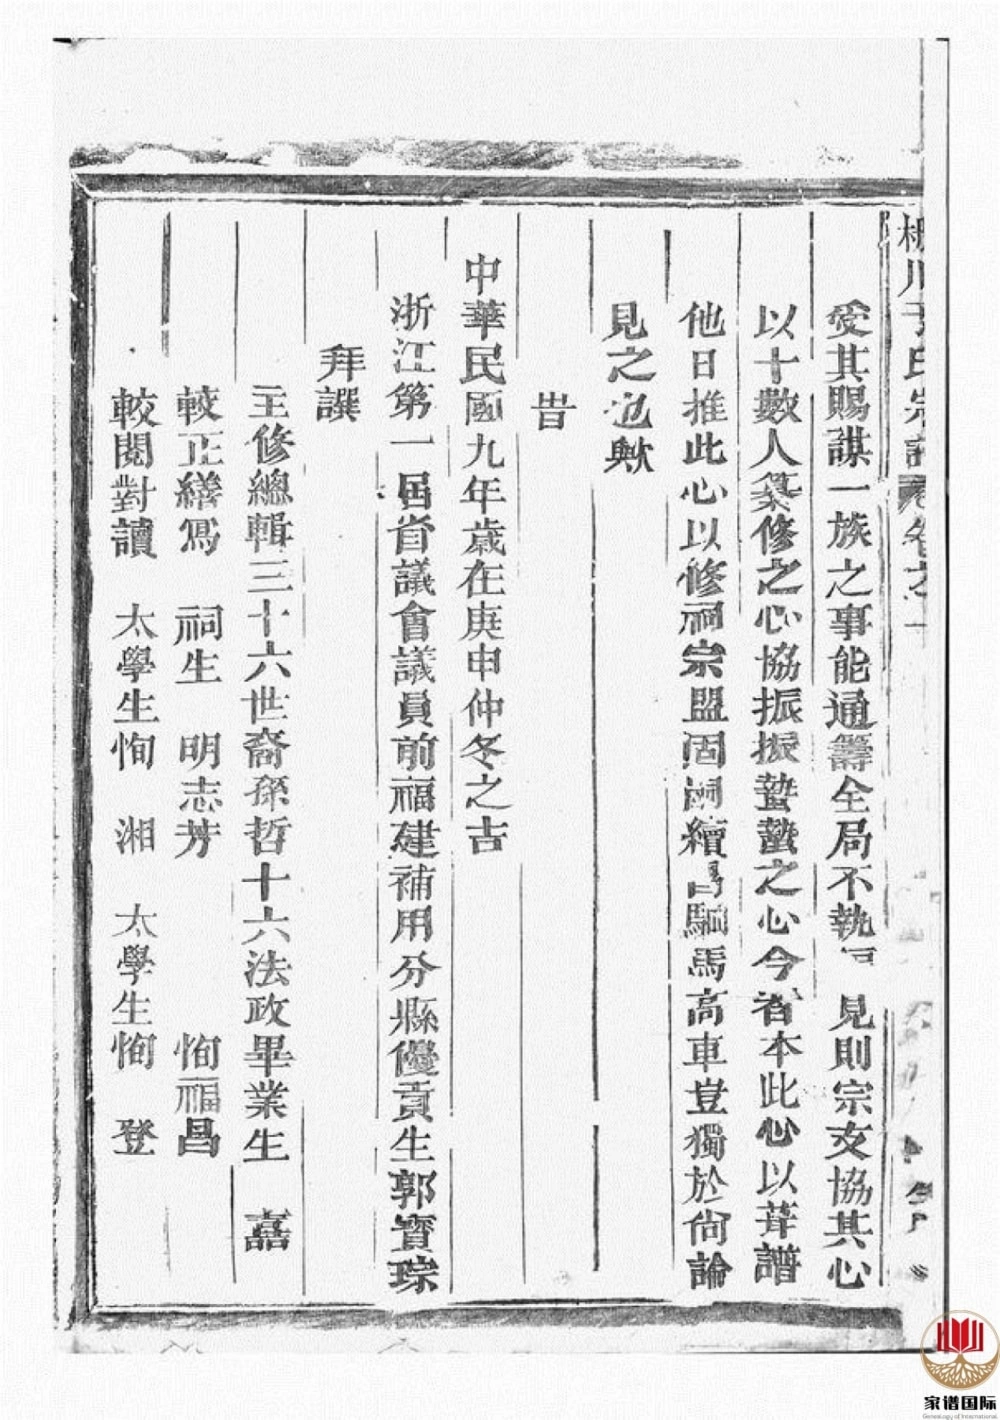 川 氏宗譜 卷之一
受其賜謀一族之事能通籌全局不執 見則宗支協其心
以十數人纂修之心協振振蟄蟄之心今者本此心以葺譜
他日推此心以修祠宗盟固嗣續昌駟馬高車豈獨於尚論
見之也歟
旹
中華民國九年歲在庚申仲冬之吉
浙江第一屆省議會議員前福建補用分縣優貢生郭寶琮
拜譔
主修總輯三十六世裔孫哲十六法政畢業生 嘉
較正繕寫 祠生 明志芳 恂福昌
較閱對讀 太學生恂 湘 太學生恂 登
家谱国际
Genealogy of International